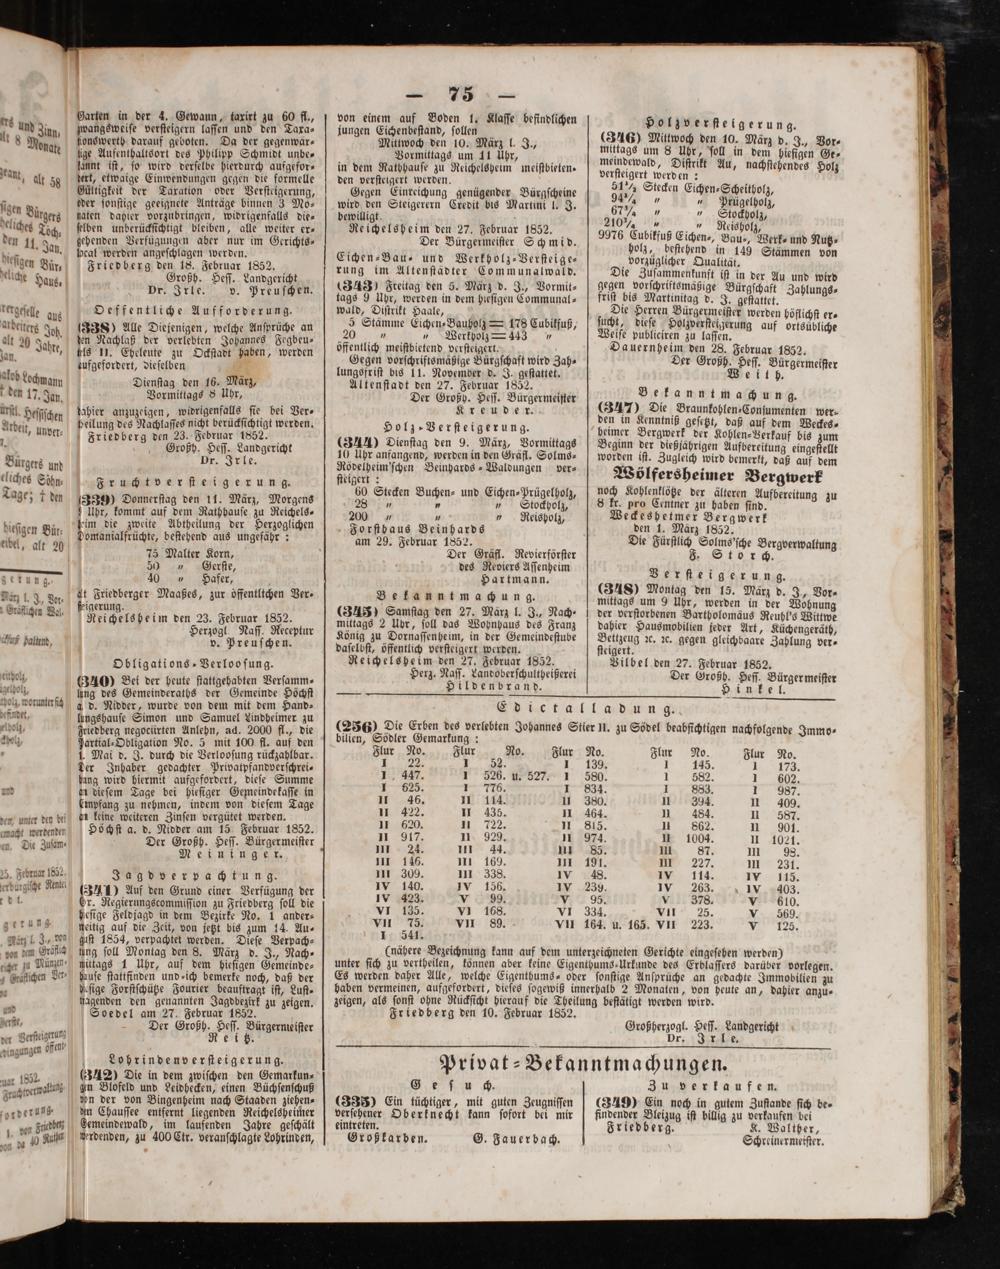 — 75 —
Garten in der 4. Gewann, taxirt zu 60 fl.,
zwangsweise versteigern lassen und den Taxa-
tionswerth darauf geboten. Da der gegenwär-
tige Aufenthaltsort des Philipp Schmidt unbe-
kannt ist, so wird derselbe hierdurch aufgefor-
dert, etwaige Einwendungen gegen die formelle
Gültigkeit der Taxation oder Versteigerung,
oder sonstige geeignete Anträge binnen 3 Mo-
naten dahier vorzubringen, widrigenfalls die-
selben unberücksichtigt bleiben, alle weiter er-
gehenden Verfügungen aber nur im Gerichts-
local werden angeschlagen werden.
Friedberg den 18. Februar 1852.
Großh. Hess. Landgericht
Dr. Irle. v. Preuschen.
Oeffentliche Aufforderung.
(338) Alle Diejenigen, welche Ansprüche an
den Nachlaß der verlebten Johannes Feghen-
tels II. Eheleute zu Ockstadt haben, werden
aufgefordert, dieselben
Dienstag den 16. März,
Vormittags 8 Uhr,
dahier anzuzeigen, widrigenfalls sie bei Ver-
theilung des Nachlasses nicht berücksichtigt werden.
Friedberg den 23. Februar 1852.
Großh. Hess. Landgericht
Dr. Irle.
Fruchtversteigerung.
(339) Donnerstag den 11. März, Morgens
Uhr, kommt auf dem Rathhause zu Reichels-
heim die zweite Abtheilung der Herzoglichen
Domanialfrüchte, bestehend aus ungefähr :
75 Malter Korn,
50 „ Gerste,
40 „ Hafer,
alt Friedberger Maaßes, zur öffentlichen Ver-
steigerung.
Reichelsheim den 23. Februar 1852.
Herzogl Nass. Receptur
v. Preuschen.
Obligations-Verloosung.
(340) Bei der heute stattgehabten Versamm-
lung des Gemeinderaths der Gemeinde Höchst
a. d. Nidder, wurde von dem mit dem Hand-
lungshause Simon und Samuel Lindheimer zu
Friedberg negociirten Anlehn, ad. 2000 fl., die
Partial-Obligation No. 5 mit 100 fl. auf den
1. Mai d. J. durch die Verloosung rückzahlbar.
Der Inhaber gedachter Privatpfandverschrei-
bung wird hiermit aufgefordert, diese Summe
an diesem Tage bei hiesiger Gemeindekasse in
Empfang zu nehmen, indem von diesem Tage
an keine weiteren Zinsen vergütet werden.
Höchst a. d. Nidder am 15 Februar 1852.
Der Großh. Hess. Bürgermeister
Meininger.
Jagdverpachtung.
(341) Auf den Grund einer Verfügung der
Gr. Regierungscommission zu Friedberg soll die
hiesige Feldjagd in dem Bezirke No. 1 ander-
weitig auf die Zeit, von jetzt bis zum 14. Au-
gust 1854, verpachtet werden. Diese Verpach-
tung soll Montag den 8. März d. J., Nach-
mittags 1 Uhr, auf dem hiesigen Gemeinde-
hause stattfinden und ich bemerke noch, daß der
hiesige Forstschütze Fourier beauftragt ist, Lust-
tragenden den genannten Jagdbezirk zu zeigen.
Soedel am 27. Februar 1852.
Der Großh. Hess. Bürgermeister
Reitz.
Lohrindenversteigerung.
(342) Die in dem zwischen den Gemarkun-
gen Blofeld und Leidhecken, einen Büchsenschuß
von der von Bingenheim nach Staaden ziehen-
den Chaussee entfernt liegenden Reichelsheimer
Gemeindewald, im laufenden Jahre geschält
werdenden, zu 400 Ctr. veranschlagte Lohrinden,
von einem auf Boden 1. Klasse befindlichen
jungen Eichenbestand, sollen
Mittwoch den 10. März l. J.,
Vormittags um 11 Uhr,
in dem Rathhause zu Reichelsheim meistbieten-
den versteigert werden.
Gegen Einreichung genügender Bürgscheine
wird den Steigerern Credit bis Martini l. J.
bewilligt.
Reichelsheim den 27. Februar 1852.
Der Bürgermeister Schmid.
Eichen-Bau- und Werkholz-Versteige-
rung im Altenstädter Communalwald.
(343) Freitag den 5. März d. J., Vormit-
tags 9 Uhr, werden in dem hiesigen Communal-
wald, Distrikt Haale,
5 Stämme Eichen-Bauholz = 178 Cubikfuß,
20 „ „ Werkholz = 443 „
öffentlich meistbietend versteigert.
Gegen vorschriftsmäßige Bürgschaft wird Zah-
lungsfrist bis 11. November d. J. gestattet.
Altenstadt den 27. Februar 1852.
Der Großh. Hess. Bürgermeister
Kreuder.
Holz-Versteigerung.
(344) Dienstag den 9. März, Vormittags
10 Uhr anfangend, werden in den Gräfl. Solms-
Rödelheim'schen Beinhards-Waldungen ver-
steigert :
60 Stecken Buchen- und Eichen-Prügelholz,
28 „ „ „ Stockholz,
200 „ „ „ Reisholz,
Forsthaus Beinhards
am 29. Februar 1852.
Der Gräfl. Revierförster
des Reviers Assenheim
Hartmann.
Bekanntmachung.
(345) Samstag den 27. März l. J., Nach-
mittags 2 Uhr, soll das Wohnhaus des Franz
König zu Dornassenheim, in der Gemeindestube
daselbst, öffentlich versteigert werden.
Reichelsheim den 27. Februar 1852.
Herz. Nass. Landoberschultheißerei
Hildenbrand.
Holzversteigerung.
(346) Mittwoch den 10. März d. J., Vor-
mittags um 8 Uhr, soll in dem hiesigen Ge-
meindewald, Distrikt Au, nachstehendes Holz
versteigert werden :
51½ Stecken Eichen-Scheitholz,
94¾ „ „ Prügelholz,
67¾ „ „ Stockholz,
210¾ „ „ Reisholz,
9976 Cubikfuß Eichen-, Bau-, Werk- und Nutz-
holz, bestehend in 149 Stämmen von
vorzüglicher Qualität.
Die Zusammenkunft ist in der Au und wird
gegen vorschriftsmäßige Bürgschaft Zahlungs-
frist bis Martinitag d. J. gestattet.
Die Herren Bürgermeister werden höflichst er-
sucht, diese Holzversteigerung auf ortsübliche
Weise publiciren zu lassen.
Dauernheim den 28. Februar 1852.
Der Großh. Hess. Bürgermeister
Weith.
Bekanntmachung.
(347) Die Braunkohlen-Consumenten wer-
den in Kenntniß gesetzt, daß auf dem Weckes-
heimer Bergwerk der Kohlen-Verkauf bis zum
Beginn der dießjährigen Aufbereitung eingestellt
worden ist. Zugleich wird bemerkt, daß auf dem
Wölfersheimer Bergwerk
noch Kohlenklöße der älteren Aufbereitung zu
8 kr. pro Centner zu haben sind.
Weckesheimer Bergwerk
den 1. März 1852.
Die Fürstlich Solms'sche Bergverwaltung
F. Storch.
Versteigerung.
(348) Montag den 15. März d. J., Vor-
mittags um 9 Uhr, werden in der Wohnung
der verstorbenen Bartholomäus Reuhl's Wittwe
dahier Hausmobilien jeder Art, Küchengeräth,
Bettzeug ꝛc. ꝛc. gegen gleichbaare Zahlung ver-
steigert.
Vilbel den 27. Februar 1852.
Der Großh. Hess. Bürgermeister
Hinkel.
Edictalladung.
(256) Die Erben des verlebten Johannes Stier II. zu Södel beabsichtigen nachfolgende Immo-
bilien, Södler Gemarkung :
Flur No. Flur No. Flur No. Flur No. Flur No.
I 22. I 52. I 139. I 145. I 173.
I 447. I 526. u. 527. I 580. I 582. I 602.
I 625. I 776. I 834. I 883. I 987.
II 46. II 114. II 380. II 394. II 409.
II 422. II 435. II 464. II 484. II 587.
II 620. II 722. II 815. II 862. II 901.
II 917. II 929. II 974. II 1004. II 1021.
III 24. III 44. III 85. III 87. III 98.
III 146. III 169. III 191. III 227. III 231.
III 309. III 338. IV 48. IV 114. IV 115.
IV 140. IV 156. IV 239. IV 263. IV 403.
IV 423. V 99. V 95. V 378. V 610.
VI 135. VI 168. VI 334. VII 25. V 569.
VII 75. VII 89. VII 164. u. 165. VII 223. V 125.
I 541.
(nähere Bezeichnung kann auf dem unterzeichneten Gerichte eingesehen werden)
unter sich zu vertheilen, können aber keine Eigenthums-Urkunde des Erblassers darüber vorlegen.
Es werden daher Alle, welche Eigenthums- oder sonstige Ansprüche an gedachte Immobilien zu
haben vermeinen, aufgefordert, dieses sogewiß innerhalb 2 Monaten, von heute an, dahier anzu-
zeigen, als sonst ohne Rücksicht hierauf die Theilung bestätigt werden wird.
Friedberg den 10. Februar 1852.
Großherzogl. Hess. Landgericht
Dr. Irle.
Privat-Bekanntmachungen.
Gesuch.
(335) Ein tüchtiger, mit guten Zeugnissen
versehener Oberknecht kann sofort bei mir
eintreten.
Großkarben. G. Fauerbach.
Zu verkaufen.
(349) Ein noch in gutem Zustande sich be-
findender Bleizug ist billig zu verkaufen bei
Friedberg. K. Walther,
Schreinermeister.